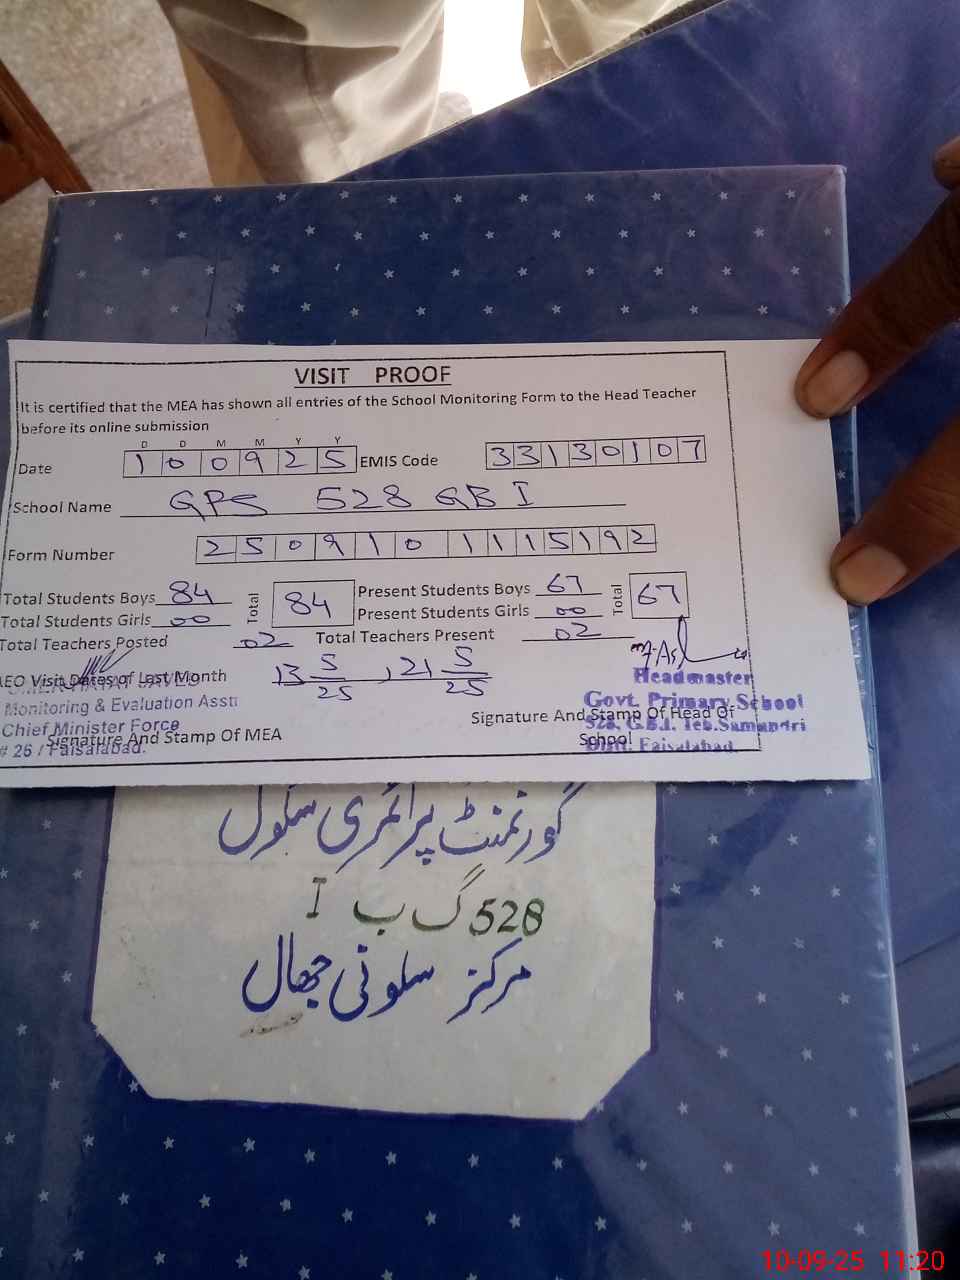 VISIT PROOF
It is certified that the MEA has shown all entries of the School Monitoring Form to the Head Teacher
before its online submission
D D M M Y Y
Date 1 0 0 9 2 5 EMIS Code 3 3 1 3 0 1 0 7
School Name GPS 528 GB I
Form Number 2 5 0 9 1 0 1 1 1 5 1 9 2
Total Students Boys 84 Total 84 Present Students Boys 67 Total 67
Total Students Girls 00 Present Students Girls 00
Total Teachers Posted 02 Total Teachers Present 02
AEO Visit Dates of Last Month 13 5/25, 21 5/25
Monitoring & Evaluation Asstt
Chief Minister Force
# 26 / Faisalabad.
Signature And Stamp Of MEA
Headmaster
Govt. Primary School
528, G.B.I. Teh. Samundri
Distt. Faisalabad.
Signature And Stamp Of Head Of
School
گورنمنٹ پرائمری سکول
528 گ ب I
مرکز سلونی جھال
10-09-25 11:20